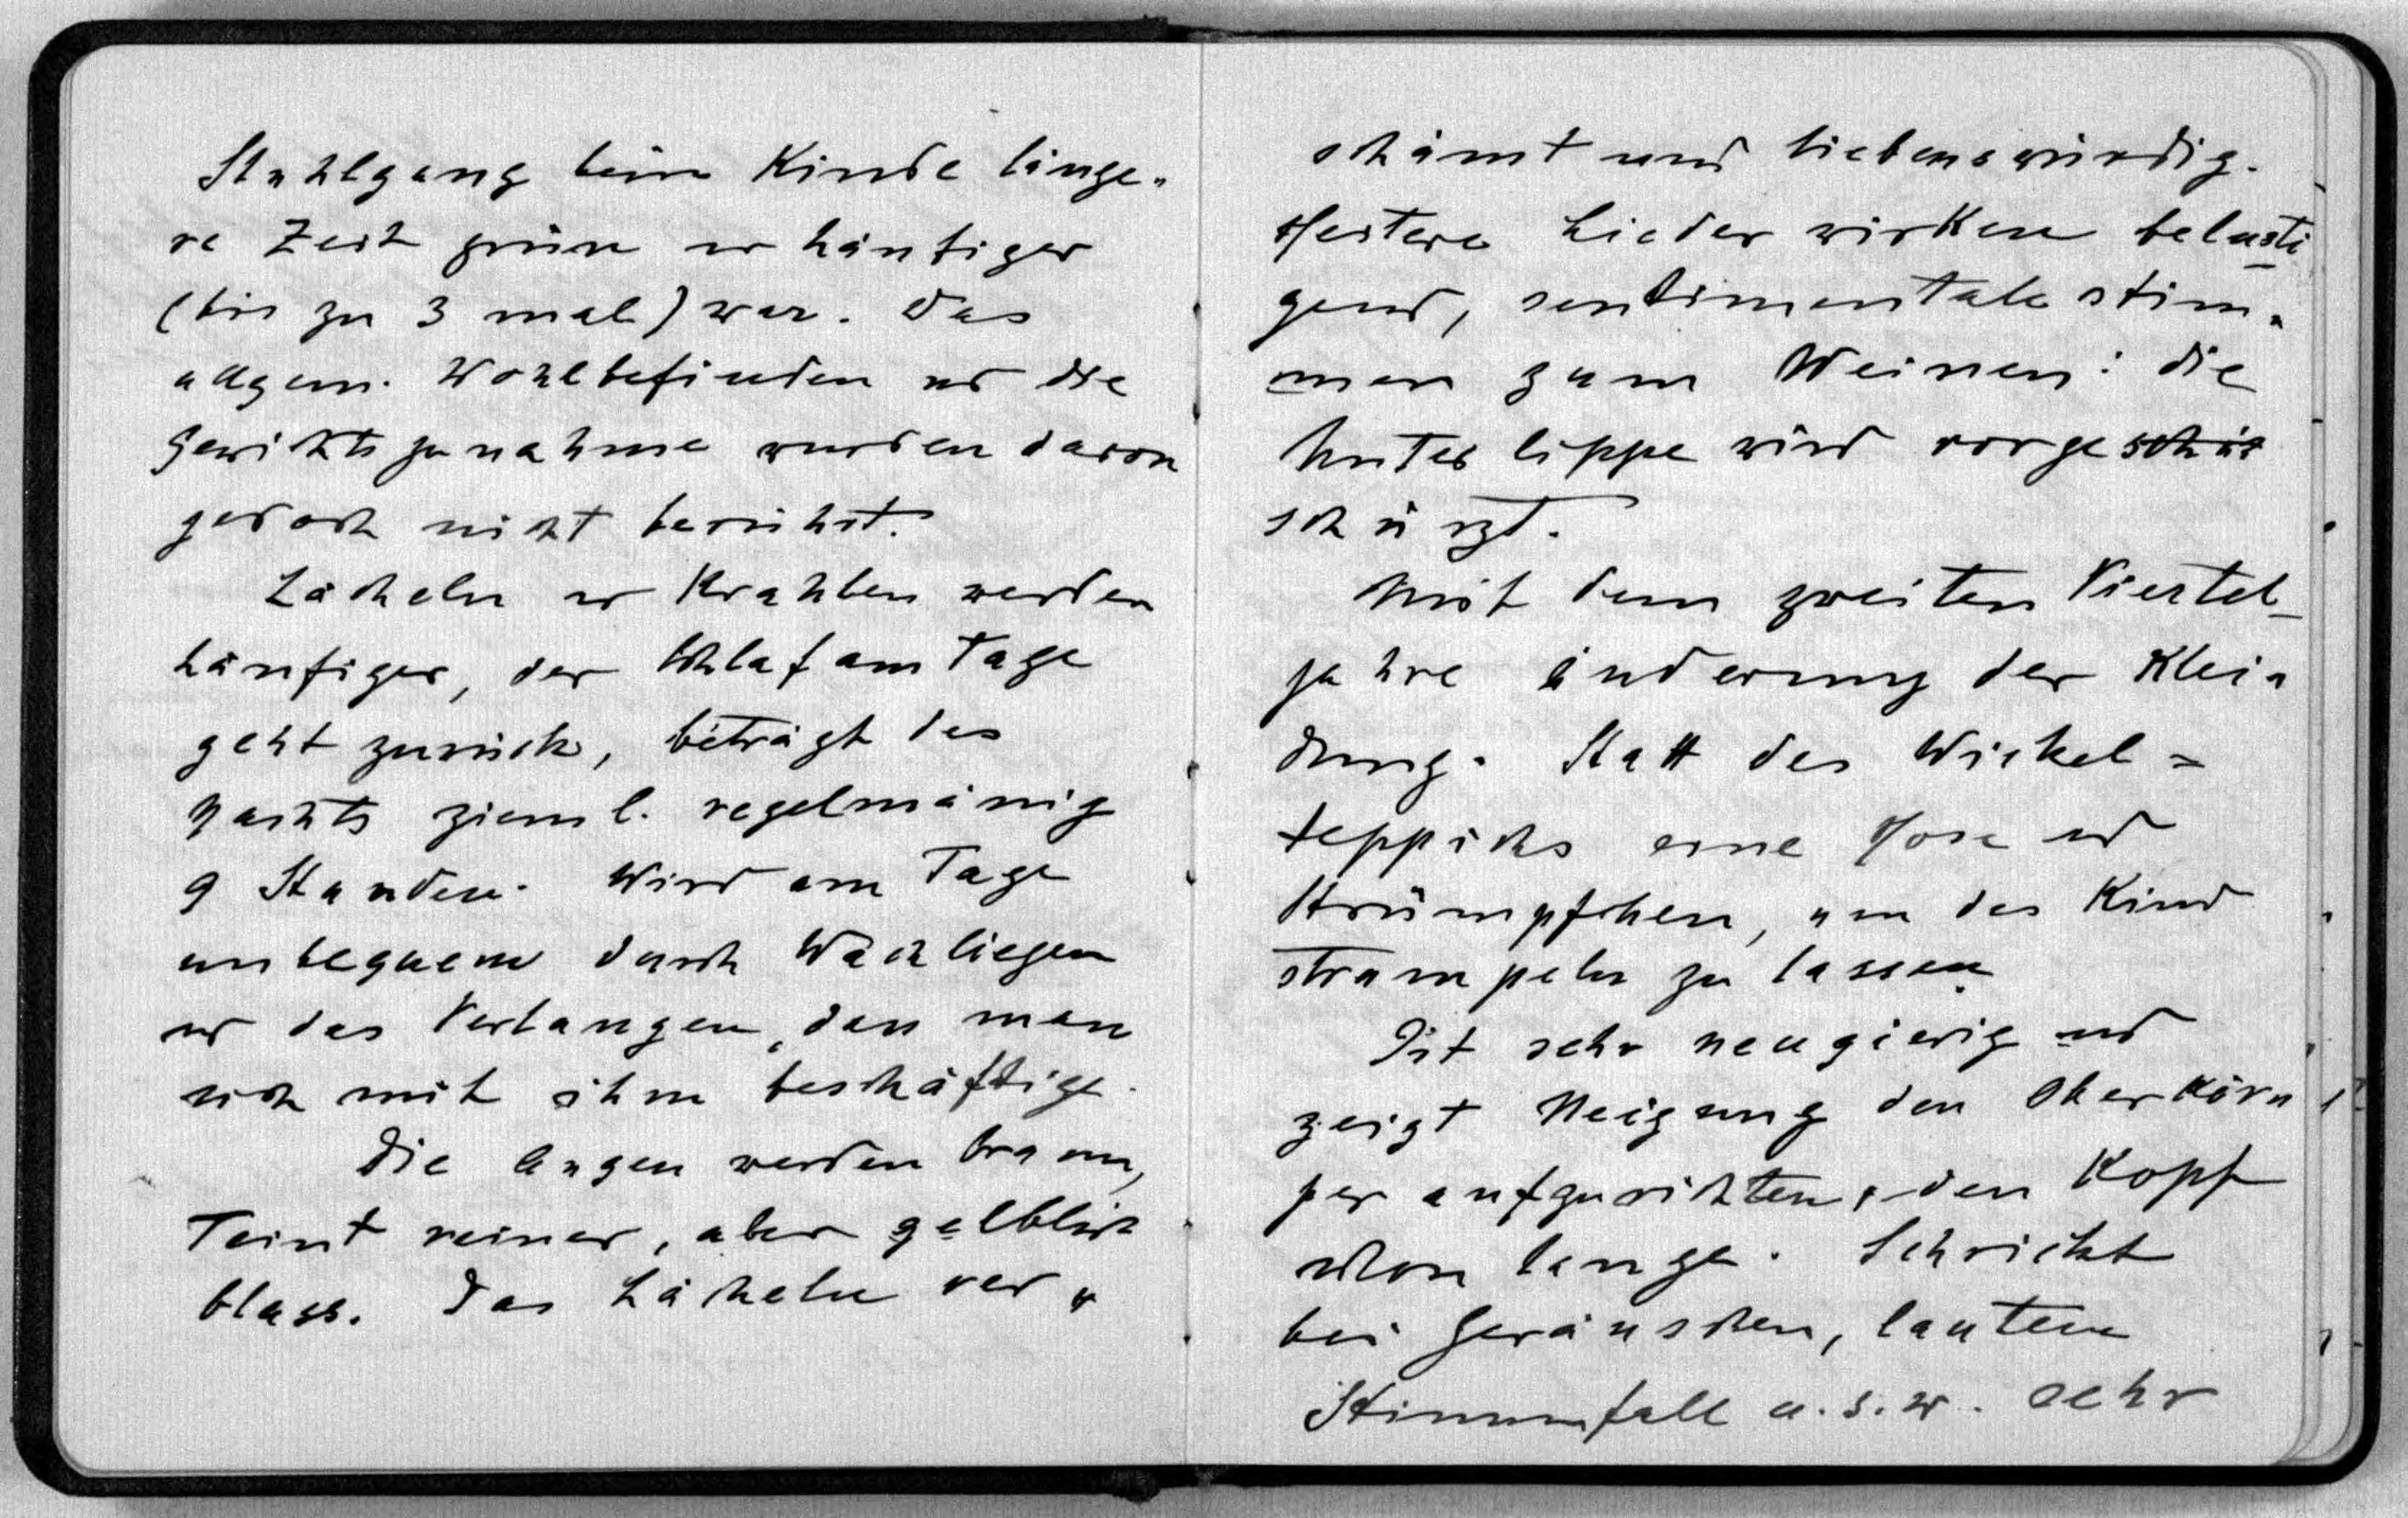 Stuhlgang beim Kinde länge-
re Zeit grün u häufiger
(bis zu 3 mal) war. Das
allgem. Wohlbefinden ud die
Gewichtszunahme wurden davon
jedoch nicht berührt.
Lächeln u Krahlen werden
häufiger, der Schlaf am Tage
geht zurück, beträgt des
Nachts zieml. regelmäßig
9 Stunden. Wird am Tage
unbequem durch Wachliegen
ud das Verlangen, dass man
sich mit ihm beschäftige.
Die Augen werden braun,
Teint reiner, aber gelblich
blass. Das Lächeln ver-
schämt und liebenswürdig.
Heitere Lieder wirken belusti
gend, sentimentale stim-
men zum Weinen: die
Unterlippe wird vorgeschür
schürzt.
Mit dem zweiten Viertel-
jahre änderung der Klei-
dung. Statt des Wickel=
teppichs eine Hose ud
Strümpfchen, um das Kind
strampeln zu lassen.
Ist sehr neugierig ud
zeigt Neigung den Oberkör-
per aufzurichten, den Kopf
schon lange. Schrickt
bei Geräuschen, lautem
Stimmfall u.s.w. sehr